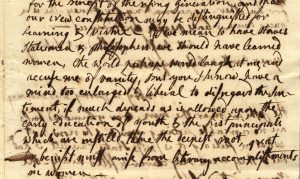 for the benefit of the rising Generation, and that
our new constitution may be distinguished for
Learning & Virtue. If we mean to have Heroes
Statesmen & Philosophers, we should have learned
women. The world perhaps would laugh at me, and
accuse me of vanity, But you I know have a
mind too enlarged & liberal to disregard the Sen
timent, if much depends as is allowed upon the
early Education of youth & the first principals
which are instilld take the deepest root, great
benifit must arise from litirary accomplishments
in women